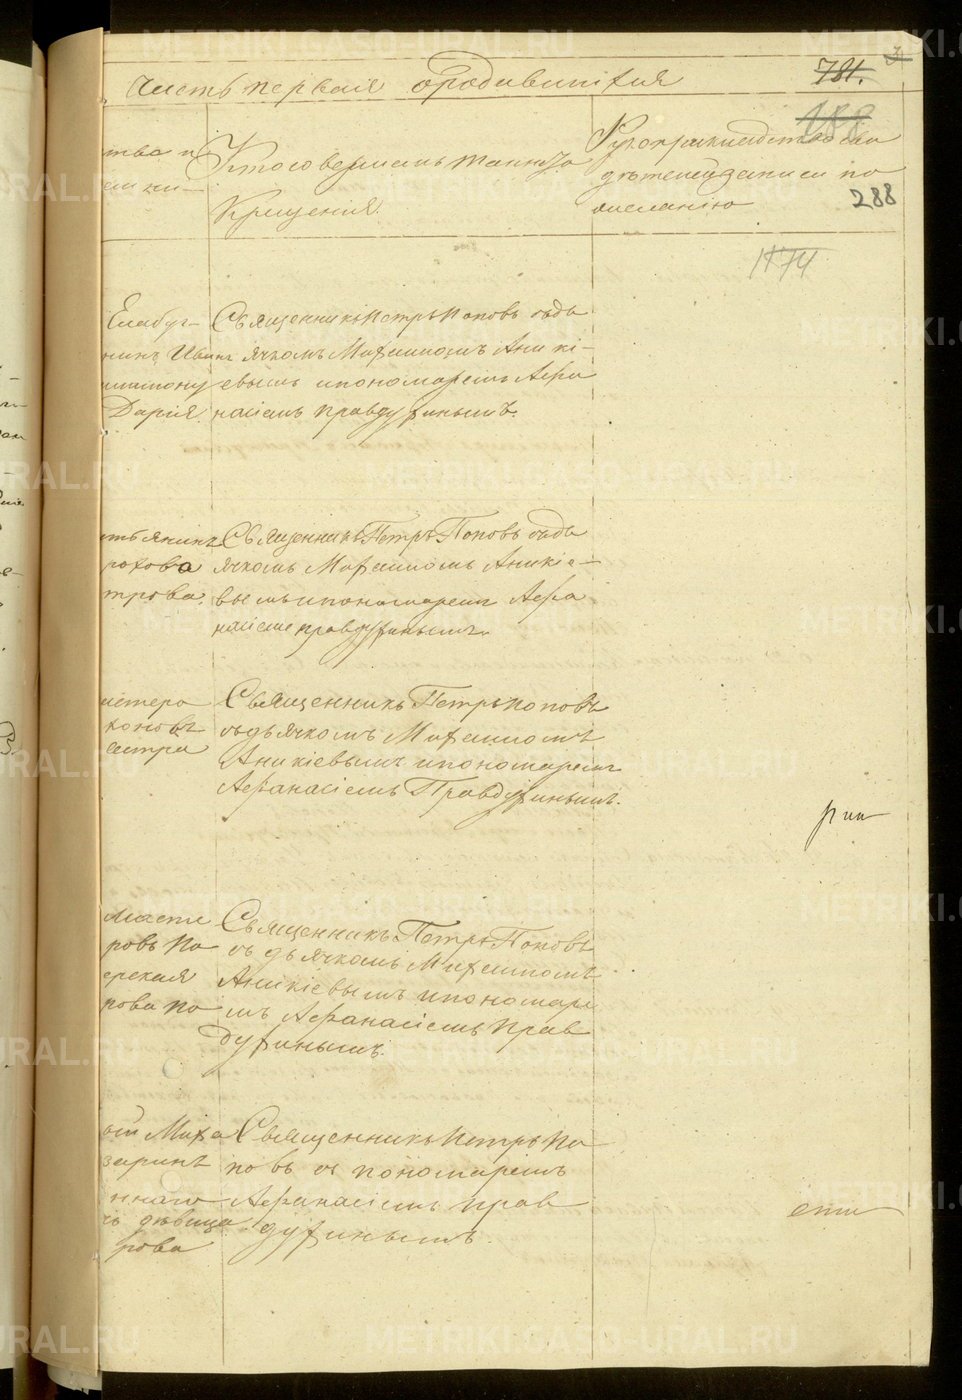 Часть первая о родившихся
781.
3
188
288
1174
тва и
Кто совершалъ таинство
Крещенія.
Рукоприкладство сви
дѣтелей записи по
желанію
Елабуг-
нинъ Иванъ
Дарія
Священникъ Петръ Поповъ съ дь
ячкомъ Мифаиломъ Аникі-
евымъ и пономаремъ Афа
насіемъ Правдуфинымъ.
рохова
трова.
Священникъ Петръ Поповъ съ дь
ячкомъ Мифаиломъ Аникіе-
вымъ и пономаремъ Афа
насіемъ Правдуфинымъ.
Священникъ Петръ Поповъ
съ дьячкомъ Мифаиломъ
Аникіевымъ и пономаремъ
Афанасіемъ Правдуфинымъ.
масте
ровъ По
рова по
Священникъ Петръ Поповъ
съ дьячкомъ Мифаиломъ
Аникіевымъ и пономаре
мъ Афанасіемъ Прав
дуфинымъ.
ой Миха
ннаго
дѣвица
рова
Священникъ Петръ По
повъ съ пономаремъ
Афанасіемъ Прав
дуфинымъ.
METRIKI.GASO-URAL.RU